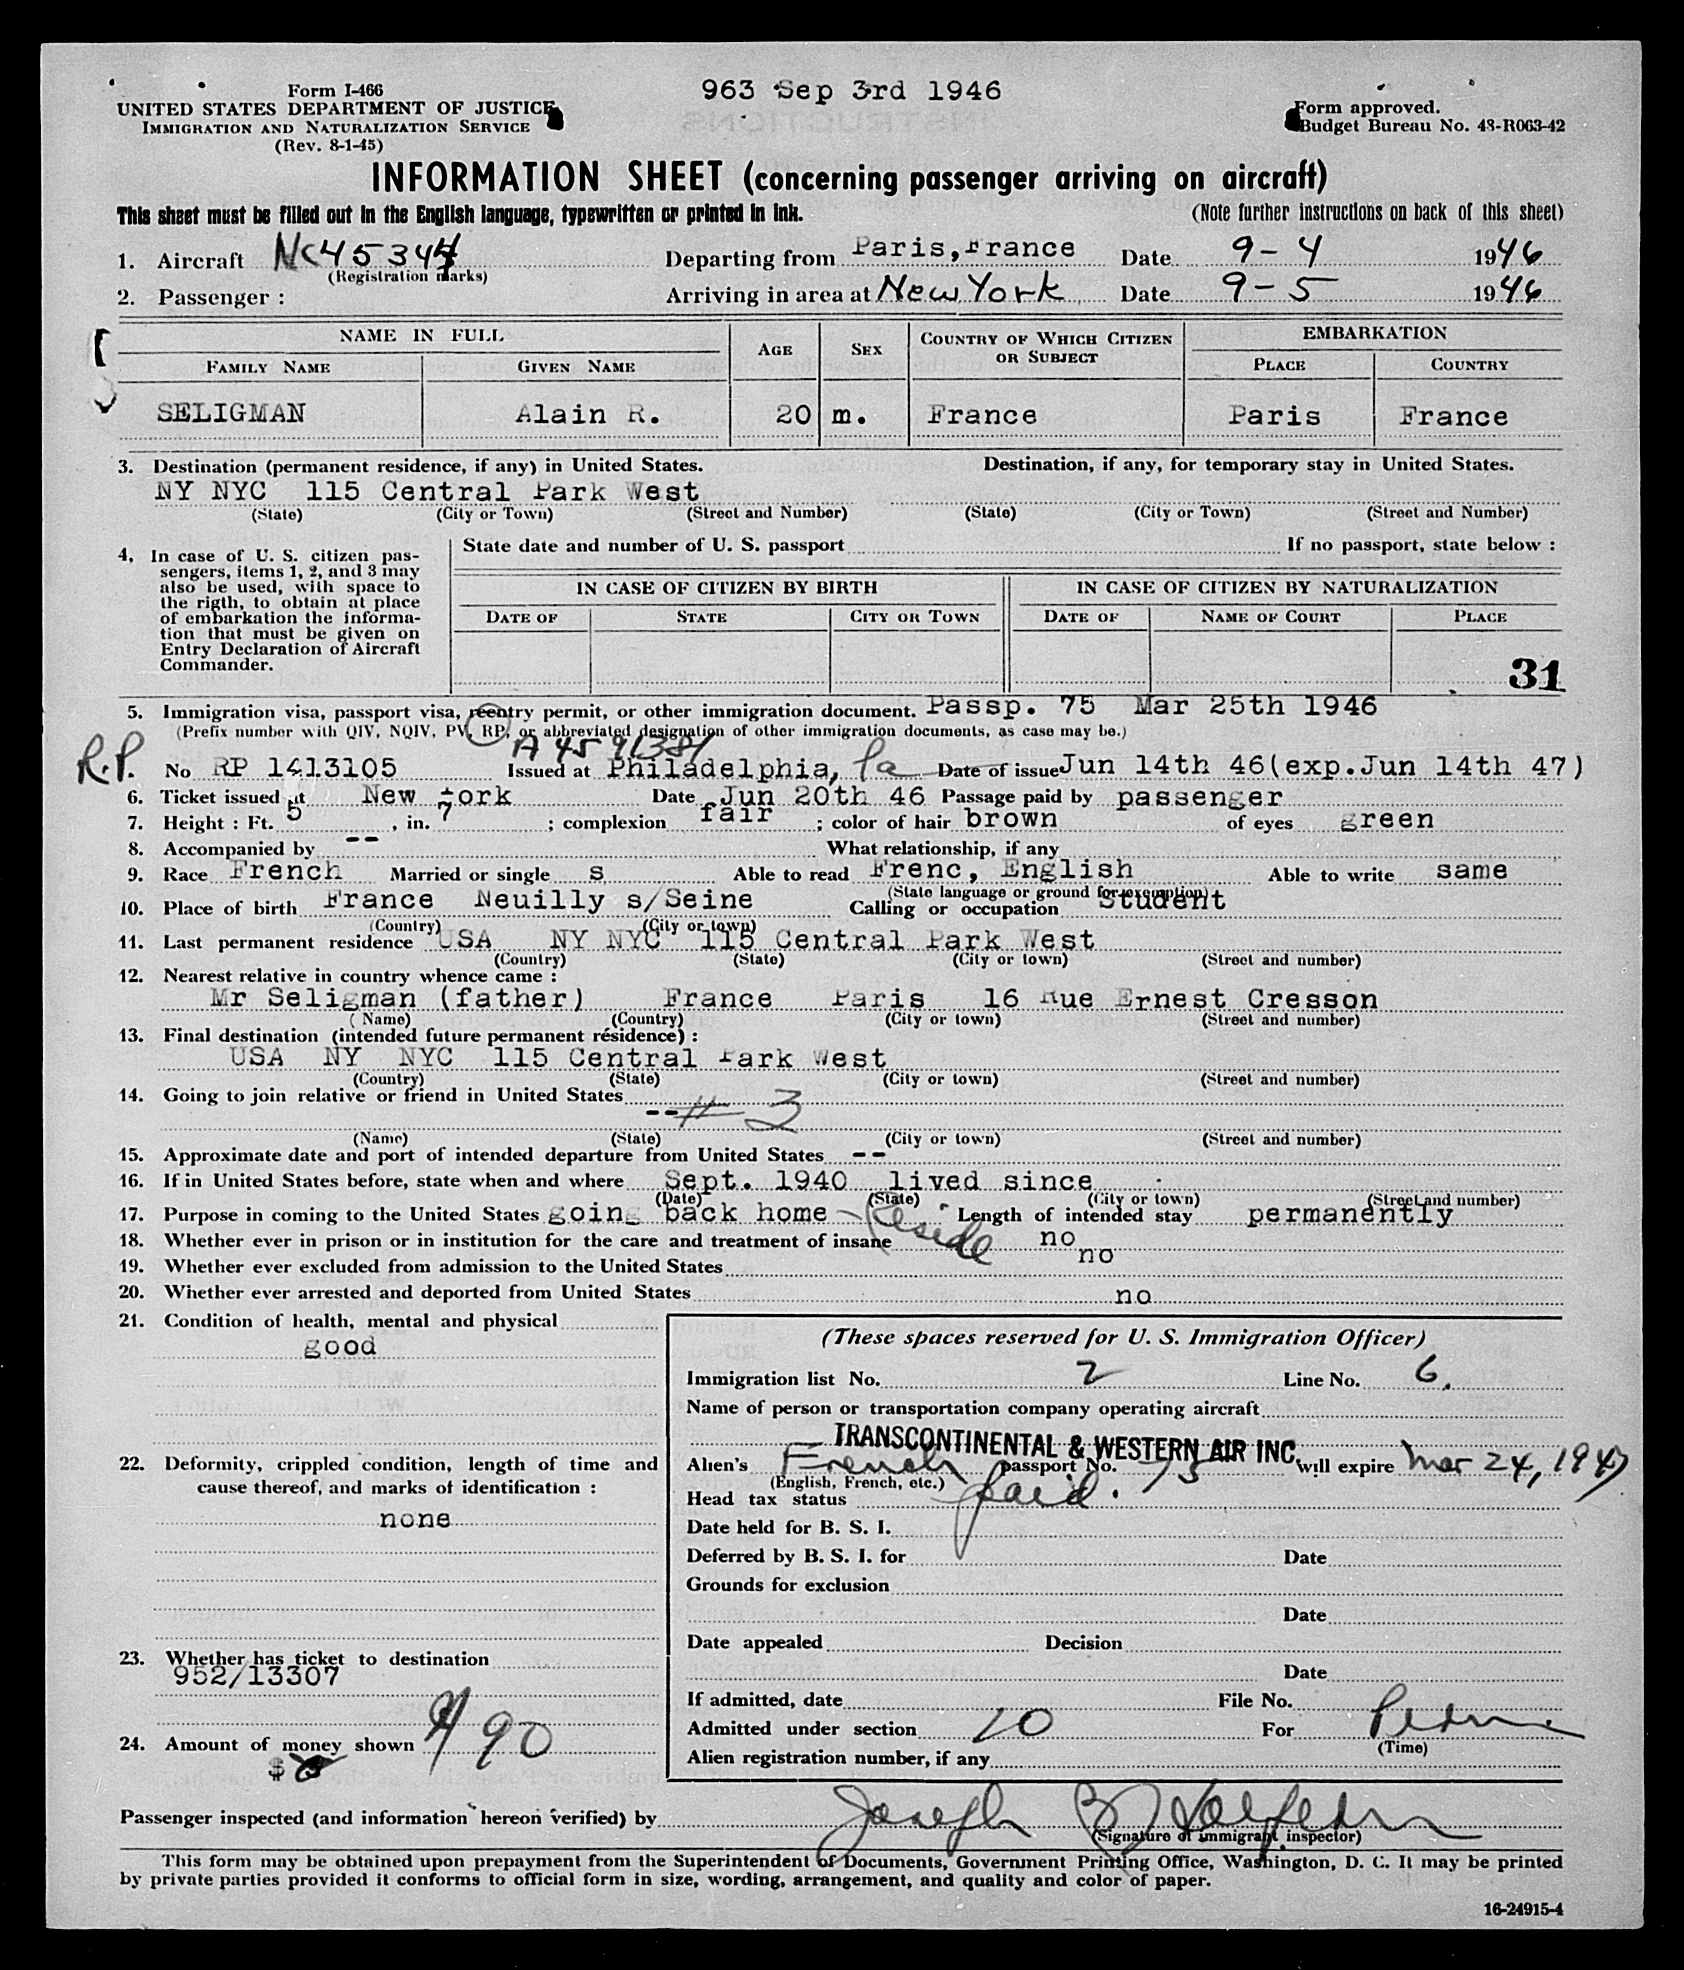 963 Sep 3rd 1946
Form I-466
UNITED STATES DEPARTMENT OF JUSTICE
IMMIGRATION AND NATURALIZATION SERVICE
(Rev. 8-1-45)
Form approved.
Budget Bureau No. 43-R063-42
INFORMATION SHEET (concerning passenger arriving on aircraft)
This sheet must be filled out in the English language, typewritten or printed in ink.
(Note further instructions on back of this sheet)
1. Aircraft NC45344 Departing from Paris, France Date 9-4 1946
(Registration marks)
2. Passenger : Arriving in area at New York Date 9-5 1946
NAME IN FULL AGE SEX COUNTRY OF WHICH CITIZEN OR SUBJECT EMBARKATION
FAMILY NAME GIVEN NAME PLACE COUNTRY
SELIGMAN Alain R. 20 m. France Paris France
3. Destination (permanent residence, if any) in United States. Destination, if any, for temporary stay in United States.
NY NYC 115 Central Park West
(State) (City or Town) (Street and Number) (State) (City or Town) (Street and Number)
4. In case of U. S. citizen pas-
sengers, items 1, 2, and 3 may
also be used, with space to
the rigth, to obtain at place
of embarkation the informa-
tion that must be given on
Entry Declaration of Aircraft
Commander.
State date and number of U. S. passport If no passport, state below :
IN CASE OF CITIZEN BY BIRTH IN CASE OF CITIZEN BY NATURALIZATION
DATE OF STATE CITY OR TOWN DATE OF NAME OF COURT PLACE
31
5. Immigration visa, passport visa, reentry permit, or other immigration document. Passp. 75 Mar 25th 1946
(Prefix number with QIV, NQIV, PV, RP, or abbreviated designation of other immigration documents, as case may be.)
A4591381
R.P. No RP 1413105 Issued at Philadelphia, Pa Date of issue Jun 14th 46(exp.Jun 14th 47)
6. Ticket issued at New York Date Jun 20th 46 Passage paid by passenger
7. Height : Ft. 5 , in. 7 ; complexion fair ; color of hair brown of eyes green
8. Accompanied by -- What relationship, if any
9. Race French Married or single s Able to read Frenc, English Able to write same
(State language or ground for exemption)
10. Place of birth France Neuilly s/Seine Calling or occupation Student
(Country) (City or town)
11. Last permanent residence USA NY NYC 115 Central Park West
(Country) (State) (City or town) (Street and number)
12. Nearest relative in country whence came :
Mr Seligman (father) France Paris 16 Rue Ernest Cresson
(Name) (Country) (City or town) (Street and number)
13. Final destination (intended future permanent résidence) :
USA NY NYC 115 Central Park West
(Country) (State) (City or town) (Street and number)
14. Going to join relative or friend in United States
-- # 3
(Name) (State) (City or town) (Street and number)
15. Approximate date and port of intended departure from United States --
16. If in United States before, state when and where Sept. 1940 lived since
(Date) (State) (City or town) (Street and number)
17. Purpose in coming to the United States going back home - Reside Length of intended stay permanently
18. Whether ever in prison or in institution for the care and treatment of insane no
19. Whether ever excluded from admission to the United States no
20. Whether ever arrested and deported from United States no
21. Condition of health, mental and physical
good
22. Deformity, crippled condition, length of time and
cause thereof, and marks of identification :
none
23. Whether has ticket to destination
952/13307
24. Amount of money shown $90
$
(These spaces reserved for U. S. Immigration Officer)
Immigration list No. 2 Line No. 6.
Name of person or transportation company operating aircraft
TRANSCONTINENTAL & WESTERN AIR INC.
Alien's French passport No. 75 will expire Mar 24, 1947
(English, French, etc.)
Head tax status paid.
Date held for B. S. I.
Deferred by B. S. I. for Date
Grounds for exclusion
Date
Date appealed Decision
Date
If admitted, date File No.
Admitted under section 20 For
(Time)
Alien registration number, if any
Passenger inspected (and information hereon verified) by Joseph B
(Signature of immigrant inspector)
This form may be obtained upon prepayment from the Superintendent of Documents, Government Printing Office, Washington, D. C. It may be printed
by private parties provided it conforms to official form in size, wording, arrangement, and quality and color of paper.
16-24915-4